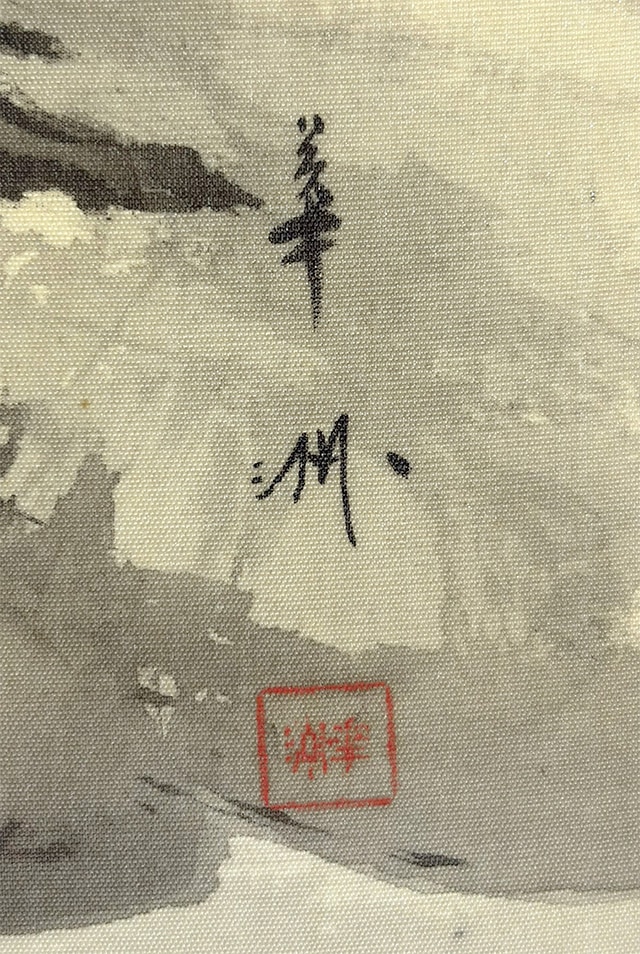 華
洲
華洲